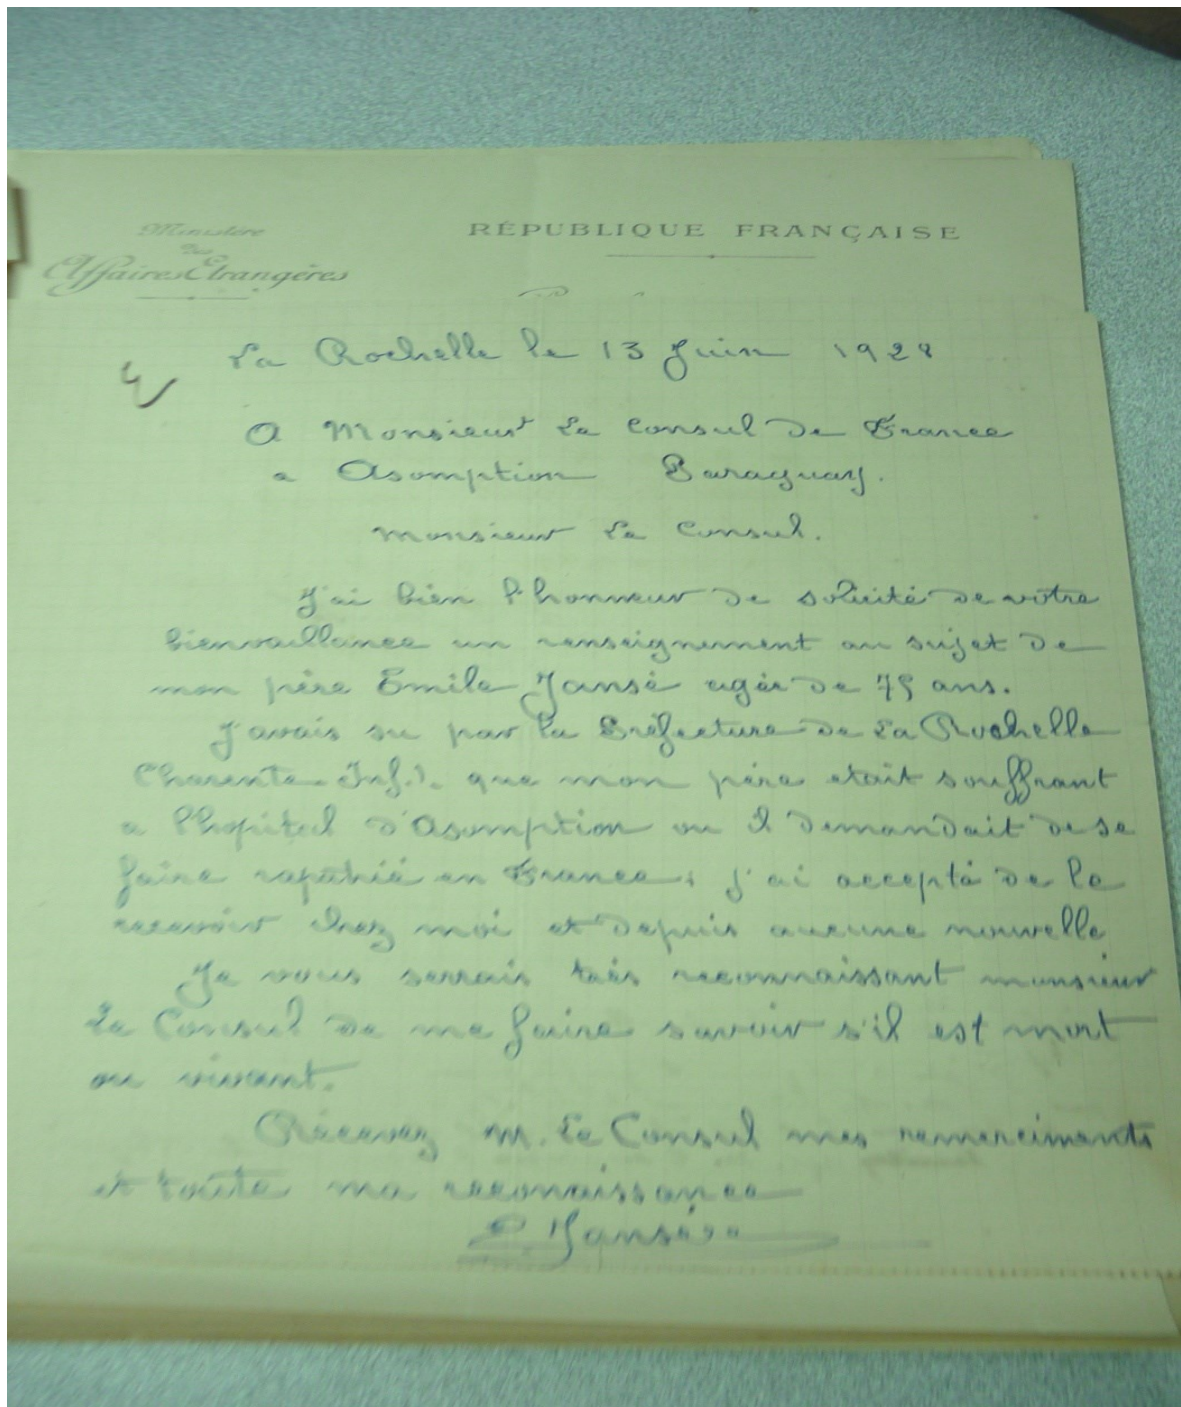 Ministère
Des
Affaires Etrangères
RÉPUBLIQUE FRANÇAISE
La Rochelle le 13 Juin 1928
A Monsieur Le Consul De France
a Asomption Paraguay.
Monsieur Le Consul.
J'ai bien l'honneur de solicité de votre
bienvaillance un renseignement au sujet de
mon père Emile Jansé agér de 75 ans.
J'avais su par la Préfecture de La Rochelle
Charente Inf.). que mon père etait souffrant
a l'hopital d'Asomption ou il demandait de se
faire rapatrié en France; j'ai accepté de le
recevoir chez moi et depuis aucune nouvelle
Je vous serrais très reconnaissant monsieur
Le Consul de me faire savoir s'il est mort
ou vivant.
Récevez M. Le Consul mes remerciments
et toute ma reconnaissance